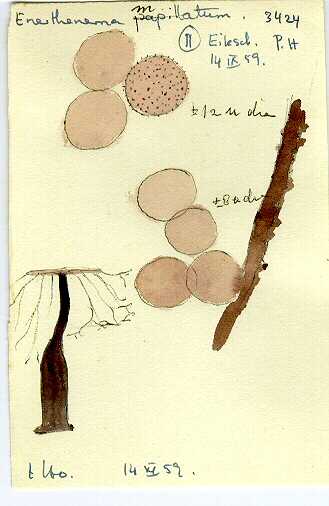 Enerthenema papillatum. 3424
m
II Eilesch. P.H
14 IX 59.
±12 u dia
±8 u dia
14 XI 59.